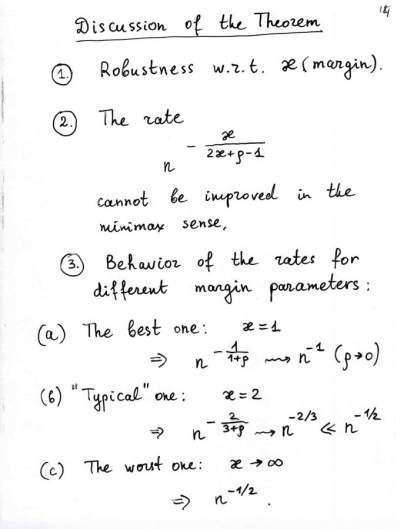 14
Discussion of the Theorem
1. Robustness w.r.t. æ (margin).
2. The rate
n^{-\frac{æ}{2æ+ρ-1}}
cannot be improved in the
minimax sense,
3. Behavior of the rates for
different margin parameters:
(a) The best one: æ = 1
⇒ n^{-\frac{1}{1+ρ}} ⟿ n^{-1} (ρ→0)
(b) "Typical" one: æ = 2
⇒ n^{-\frac{2}{3+ρ}} ⟿ n^{-2/3} ≪ n^{-1/2}
(c) The worst one: æ → ∞
⇒ n^{-1/2}.